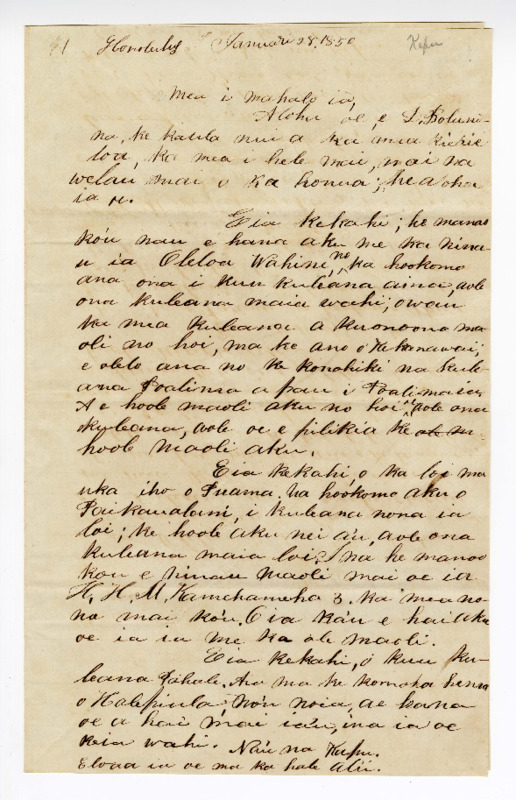 Honolulu Januari 28, 1850 Kapu
Mea i mahalo ia,
Aloha oe, e I. Boluni-
na, ke kaula nui a ka mua kiekie
loa, ka mea i hele mai, mai na
welau mai o ka honua; he aloha
ia u.
Eia kekahi; he manao
ko'u nau e hana aku me ka ninau
u ia Oleloa Wahine, no ka hookomo
ana ona i kuu kuleana aina, aole
ona kuleana maia wahi; owau
ka mea kuleana a kuonoono ma
oli no hoi, ma ke ano o Kekanawai;
e olelo ana no ke konohiki na kule
ana Poalima a pau i Poalima ia.
A e hoole maoli aku no hoi au aole ona
kuleana, aole oe e pilikia ke
hoole maoli aku.
Eia kekahi, o ka loi ma
uka iho o Puama. Ua hookomo aku o
Paikaualani, i kuleana nona ia
loi; ke hoole aku nei au, aole ona
kuleana maia loi. Ina he manao
kou e ninau maoli mai oe ia
H. H. M. Kamehameha 3. ka mea no
na mai ko'u. Oia ka'u e hai aku
oe ia ia me ka ole maoli.
Eia kekahi, o kuu ku-
leana Pahale. Aia ma ke komohana
o Halepiula no'u noia, ae hana
oe a hai mai ia'u, ina ia oe
keia wahi. Na'u na Kapu.
Eloaa ia oe ma ka hale alii.